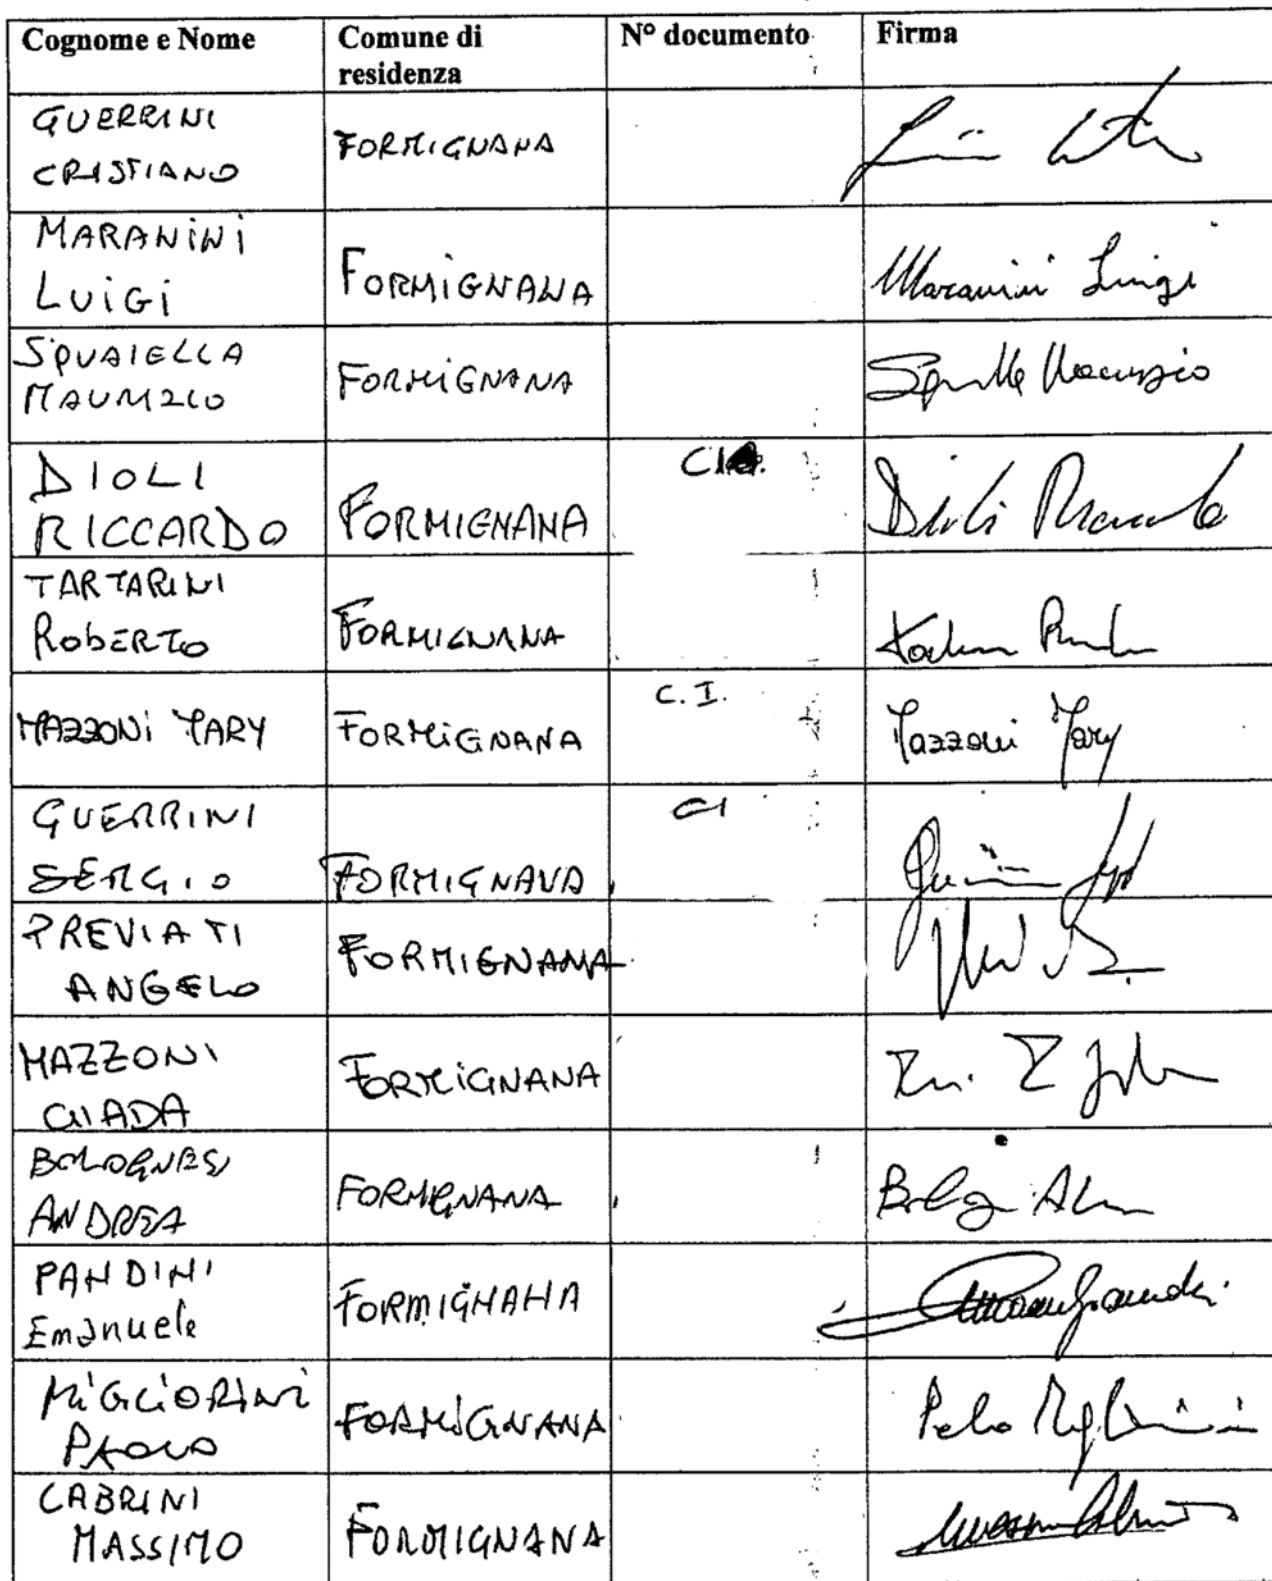 Cognome e Nome
Comune di
residenza
N° documento
Firma
GUERRINI
CRISTIANO
FORMIGNANA
MARANINI
LUIGI
FORMIGNANA
Maranini Luigi
SQUAIELLA
MAURIZIO
FORMIGNANA
Maurizio
DIOLI
RICCARDO
FORMIGNANA
C.I.
Dioli Riccardo
TARTARINI
ROBERTO
FORMIGNANA
MAZZONI MARY
FORMIGNANA
C. I.
Mazzoni Mary
GUERRINI
SERGIO
FORMIGNANA
CI
PREVIATI
ANGELO
FORMIGNANA
MAZZONI
GIADA
FORMIGNANA
BOLOGNESI
ANDREA
FORMIGNANA
PANDINI
Emanuele
FORMIGNANA
MIGLIORINI
PAOLO
FORMIGNANA
Paolo Migliorini
CABRINI
MASSIMO
FORMIGNANA